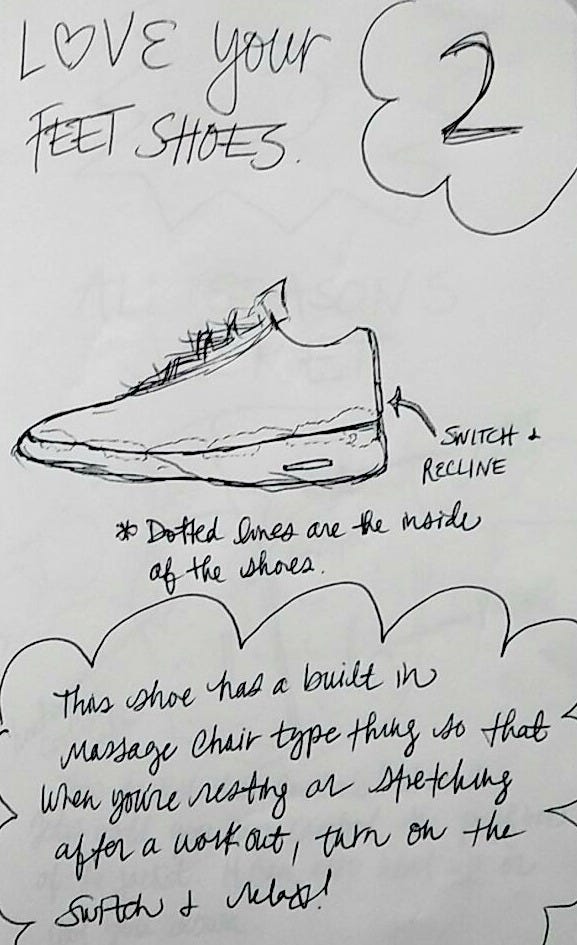 LOVE your
FEET SHOES.
2
SWITCH &
RECLINE
* Dotted lines are the inside
of the shoes.
This shoe has a built in
Massage Chair type thing so that
When you're resting or stretching
after a work out, turn on the
Switch & relax!